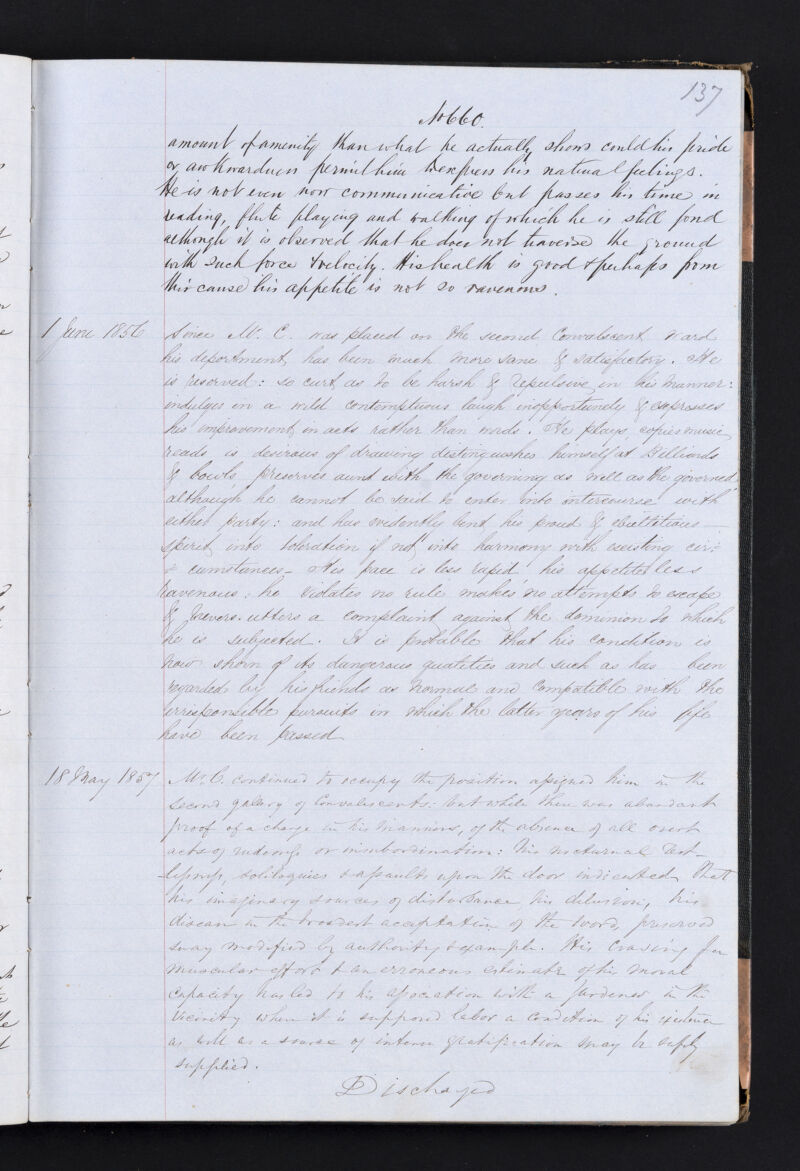 137
No 660.
amount of amenity than what he actually shows could his pride
or awkwardness permit him to express his natural feelings.
He is not even now communicative but passes his time in
reading, flute playing and walking of which he is still fond
although it is observed that he does not traverse the ground
with such force & velocity. His health is good & perhaps from
this cause his appetite is not so ravenous.
1 June 1856 Since Mr. C. was placed on the second Convalescent ward
his deportment has been much more sane & satisfactory. He
is reserved: so curt as to be harsh & repulsive in his manner:
indulges in a wild contemptuous laugh inopportunely & expresses
his improvement in acts rather than words. He plays, copies music
reads is desirous of drawing distinguishes himself at Billiards
& bowls preserves with the governing as well as the governed
although he cannot be said to enter into intercourse with
either party: and has evidently bent his proud & ebullitious
spirit into toleration if not into harmony with existing cir-
cumstances. His pace is less rapid his appetite less
ravenous: he violates no rule makes no attempts to escape
& never utters a complaint against the dominion to which
he is subjected. It is probable that his condition is
now shorn of its dangerous qualities and such as has been
regarded by his friends as normal and compatible with the
irresponsible pursuits in which the latter years of his life
have been passed
18 May 1857 Mr. C. continued to occupy the position assigned him in the
second gallery of Convalescents: but while there was abundant
proof of a change in his manners, of the absence of all overt
acts of rudeness or insubordination: his nocturnal rest-
lessness, soliloquies & assaults upon the door indicated that
his imaginary sources of disturbance his delusion, his
disease in the broadest acceptation of the word, preserved
sway modified by authority & example. His craving for
muscular effort & an erroneous estimate of his moral
capacity has led to his association with a gardener in the
vicinity where it is supposed labor a condition of his existence
as well as a source of intense gratification may be safely
supplied.
Discharged